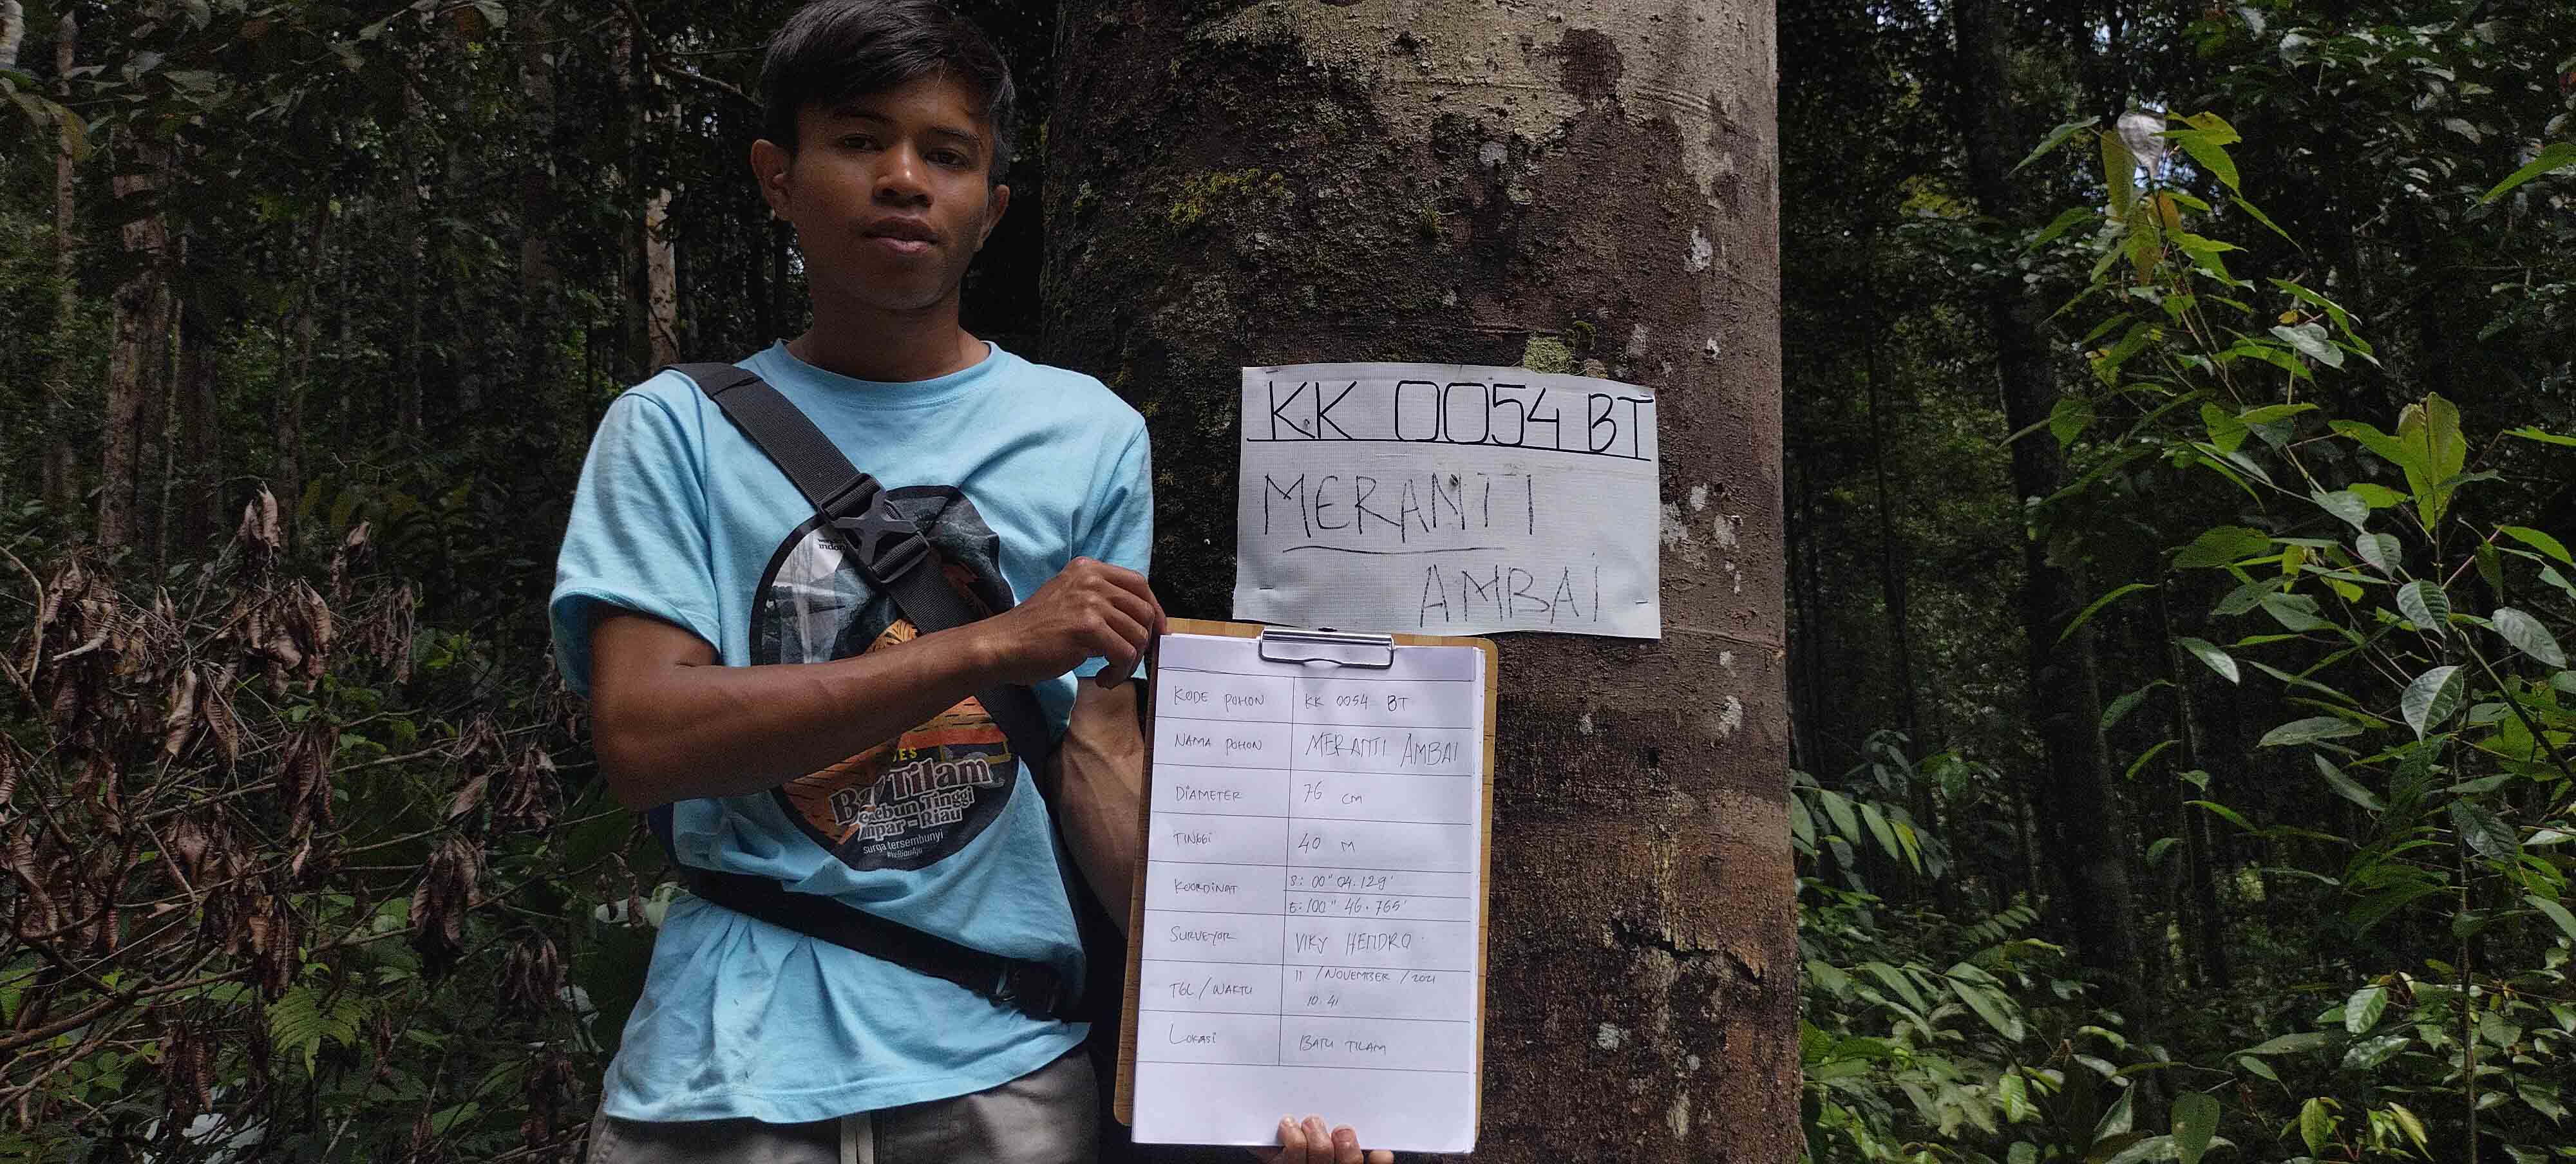 KK 0054 BT
MERANTI
AMBAI
KODE POHON KK 0054 BT
NAMA POHON MERANTI AMBAI
DIAMETER 76 CM
TINGGI 40 M
KOORDINAT S: 00" 04.129'
E: 100" 46.765'
SURVEYOR VIKY HENDRO
TGL/WAKTU 11 /NOVEMBER /2021
10.41
LOKASI BATU TILAM
Tilam
ebun Tinggi
mpar - Riau
surga tersembunyi